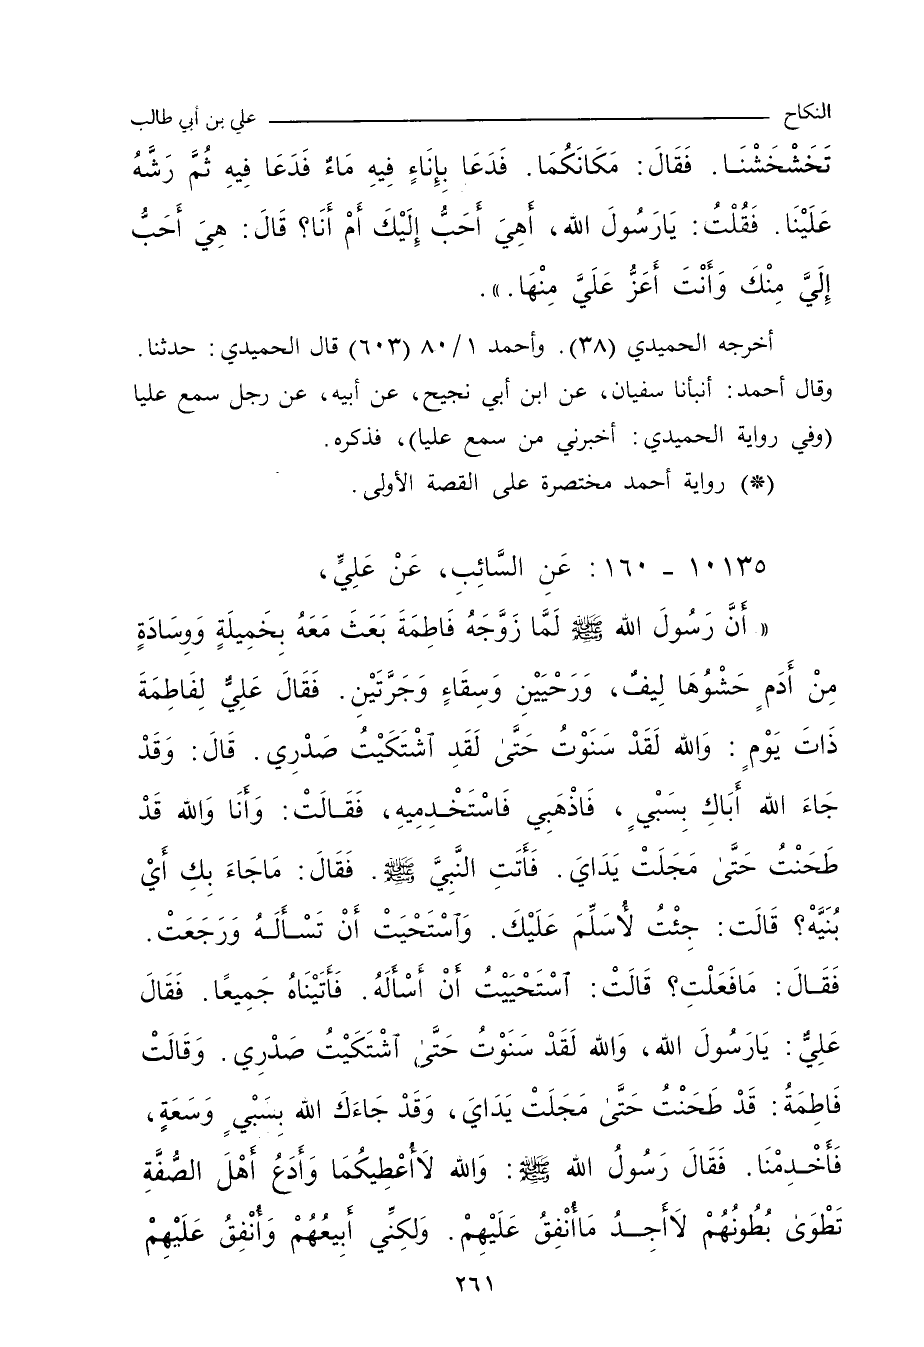 النكاح ـــــــــــــــــــــــــــــــــــــــــ علي بن أبي طالب
تَخَشْخَشْنَـا. فَقَالَ: مَكَانَكُمَا. فَدَعَا بِإِنَاءٍ فِيهِ مَاءٌ فَدَعَا فِيهِ ثُمَّ رَشَّهُ
عَلَيْنَا. فَقُلْتُ: يَارَسُولَ الله، أَهِيَ أَحَبُّ إِلَيْكَ أَمْ أَنَا؟ قَالَ: هِيَ أَحَبُّ
إِلَيَّ مِنْكَ وَأَنْتَ أَعَزُّ عَلَيَّ مِنْهَا.».
أخرجه الحميدي (٣٨). وأحمد ١/ ٨٠ (٦٠٣) قال الحميدي: حدثنا.
وقال أحمد: أنبأنا سفيان، عن ابن أبي نجيح، عن أبيه، عن رجل سمع عليا
(وفي رواية الحميدي: أخبرني من سمع عليا)، فذكره.
(*) رواية أحمد مختصرة على القصة الأولى.
١٠١٣٥ - ١٦٠: عَنِ السَّائِبِ، عَنْ عَلِيٍّ،
« أَنَّ رَسُولَ الله ﷺ لَمَّا زَوَّجَهُ فَاطِمَةَ بَعَثَ مَعَهُ بِخَمِيلَةٍ وَوِسَادَةٍ
مِنْ أَدَمٍ حَشْوُهَا لِيفٌ، وَرَحْيَيْنِ وَسِقَاءٍ وَجَرَّتَيْنِ. فَقَالَ عَلِيٌّ لِفَاطِمَةَ
ذَاتَ يَوْمٍ: وَالله لَقَدْ سَنَوْتُ حَتَّىٰ لَقَدِ ٱشْتَكَيْتُ صَدْرِي. قَالَ: وَقَدْ
جَاءَ الله أَبَاكِ بِسَبْيٍ، فَاذْهَبِي فَاسْتَخْـدِمِيهِ، فَقَـالَتْ: وَأَنَا وَالله قَدْ
طَحَنْتُ حَتَّىٰ مَجَلَتْ يَدَايَ. فَأَتَتِ النَّبِيَّ ﷺ. فَقَالَ: مَاجَاءَ بِكِ أَيْ
بُنَيَّهْ؟ قَالَت: جِئْتُ لأُسَلِّمَ عَلَيْكَ. وَٱسْتَحْيَتْ أَنْ تَسْـأَلَـهُ وَرَجَعَتْ.
فَقَـالَ: مَافَعَلْتِ؟ قَالَتْ: ٱسْتَحْيَيْتُ أَنْ أَسْأَلَهُ. فَأَتَيْنَاهُ جَمِيعًا. فَقَالَ
عَلِيٌّ: يَارَسُولَ الله، وَالله لَقَدْ سَنَوْتُ حَتَّىٰ ٱشْتَكَيْتُ صَدْرِي. وَقَالَتْ
فَاطِمَةُ: قَدْ طَحَنْتُ حَتَّىٰ مَجَلَتْ يَدَايَ، وَقَدْ جَاءَكَ الله بِسَبْيٍ وَسَعَةٍ،
فَأَخْـدِمْنَا. فَقَالَ رَسُولُ الله ﷺ: وَالله لاَأُعْطِيكُمَا وَأَدَعُ أَهْلَ الصُّفَّةِ
تَطْوَىٰ بُطُونُهُمْ لاَأَجِـدُ مَاأُنْفِقُ عَلَيْهِمْ. وَلَكِنِّي أَبِيعُهُمْ وَأُنْفِقُ عَلَيْهِمْ
٢٦١